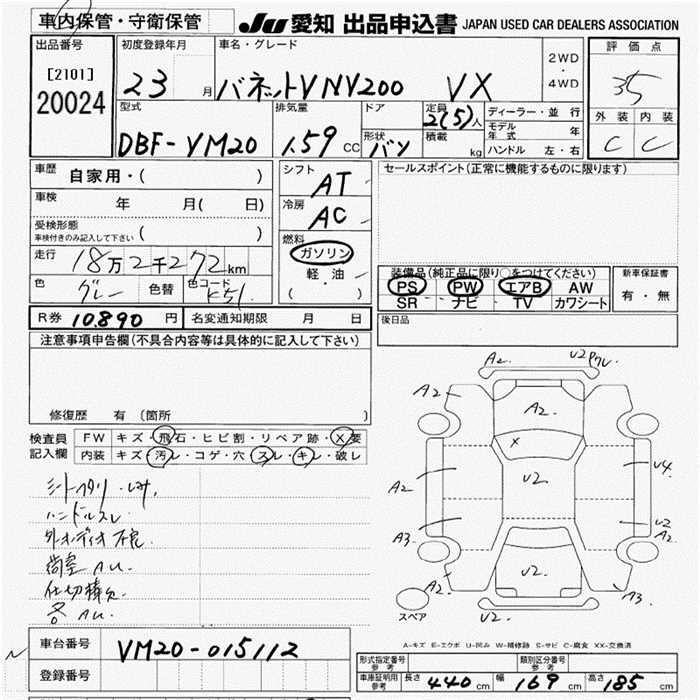 車内保管・守衛保管 JU 愛知 出品申込書 JAPAN USED CAR DEALERS ASSOCIATION
出品番号 初度登録年月 車名・グレード 評価点
[2101] 23 月 バネットVNV200 VX 2WD・4WD 35
20024 型式 排気量 ドア 定員 2(5)人 ディーラー・並行 外装 内装
DBF-VM20 1.59 CC 形状 バン 積載 kg モデル年式 年 C C
ハンドル 左・右
車歴 自家用・( ) シフト AT セールスポイント(正常に機能するものに限ります)
車検 年 月( 日) 冷房 AC
受検形態 ( )
車検付きのみ記入して下さい 燃料
走行 18万2千272km ガソリン 装備品(純正品に限り○をつけてください) 新車保証書
色 グレー 色替 色コード K51 軽・油 PS PW エアB AW 有・無
( ) SR ナビ TV カワシート
R券 10.890 円 名変通知期限 月 日 後日品
注意事項申告欄(不具合内容等は具体的に記入して下さい)
A2 U2
A2 A3
A2
修復歴 有 (箇所 )
検査員 FW キズ・飛石・ヒビ割・リペア跡・X要
記入欄 内装 キズ・汚レ・コゲ・穴 スレ・キレ・破レ
X
U2 U4
A2
ハンドルスレ
A3 U2 A2
外オーディオ不良
U2
A2 A3
スペア U2
車台番号 VM20-015112
A-キズ E-エクボ U-凹み W-補修跡 S-サビ C-腐食 XX-交換済
登録番号 形式指定番号 参考 類別区分番号 参考
車庫証明用 参考 長さ 440 cm 幅 169 cm 高さ 185 cm